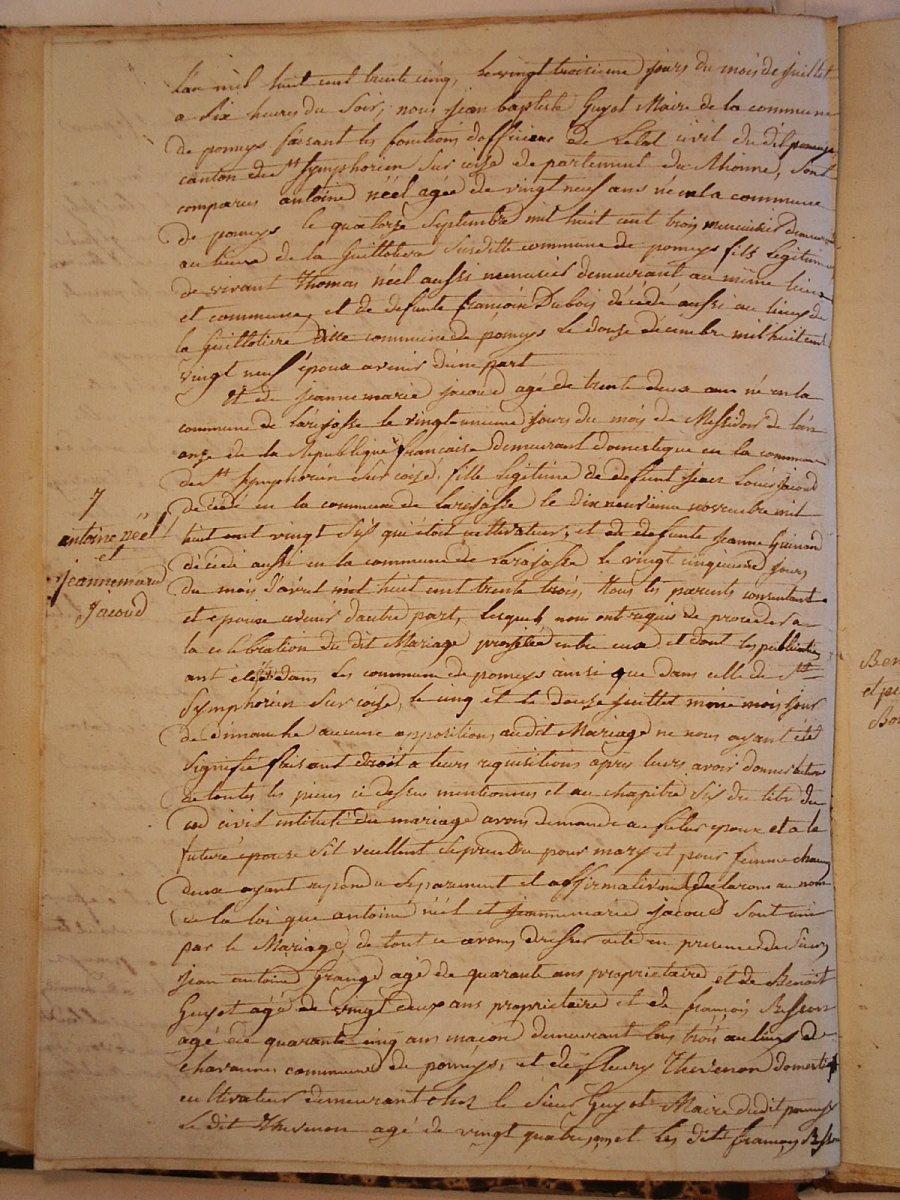 L'an mil huit cent trente cinq, le vingt troisieme jours du mois de juillet
a six heures du soir, nous jean baptiste Guyot Maire de la commune
de pomeys faisant les fonctions d'officier de L'etat civil du dit pomeys
canton de St Symphorien sur coise departement du Rhonne, sont
comparus antoine néel agée de vingt neuf ans né en la commune
de pomeys le quatorze Septembre mil huit cent trois menuisier demeurant
au lieux de la Guillotiere susditte commune de pomeys fils legitime
de vivant thomas néel aussi menusier demeurant au même lieux
et commune, et de defunte françoise Dubois décédé aussi au lieux de
la Guillotiere ditte commune de pomeys le douze décembre mil huit cent
vingt neuf époux avenir d'une part
Et de jeanne marie jacoud agé de trente deux ans né en la
commune de Larajasse le vingt unieme jours du mois de Messidor de l'an
onze de la Republique francaise demeurant domestique en la commune
de St Symphorien sur coise, fille legitime de defunt jean Louis jacoud
décédé en la commune de larajasse le dix neuvieme novembre mil
huit cent vingt six qui étoit cultivateur, et de defunte jeanne Guinand
décédé aussi en la commune de Larajasse le vingt cinquieme jours
du mois d'avril mil huit cent trente trois, tous les parents consentant
et epouse avenir d'autre part, lesquels nous ont requis de proceder a
la celebration du dit Mariage projetée entre eux et dont les publications
ont étés dans les commune de pomeys ainsi que dans celle de St
Symphorien sur coise, le cinq et le douze juillet même mois jour
de dimanche aucune opposition audit Mariage ne nous ayant été
signifié faisant droit a leurs requisitions apres leurs avoir donner lecture
de toutes les pieces ci dessus mentionnes et au chapitre six du titre du
code civil intitulé du mariage avons demande au futur epoux et a la
future épouse s'il veullent se prendre pour mary et pour femme chacun
deux ayant repondu separement et affirmativement declarons au nom
de la loi que antoine néel et jeanne marie jacoud sont unie
par le Mariage, de tout ce avons dresser acte en presence de sieurs
jean antoine Grange agé de quarante ans proprietaire et de Benoit
Guyot agé de vingt deux ans proprietaire et de françois Besson
agé de quarante cinq ans maçon demeurant tous trois au lieux de
chavannes commune de pomeys, et de fleury thevenon domestique
cultivateur demeurant chez le sieur Guyot Maire dudit pomeys
le dit thevenon agé de vingt quatre ans et les dits françois Besson
7
antoine néel
et
jeanne marie
jacoud